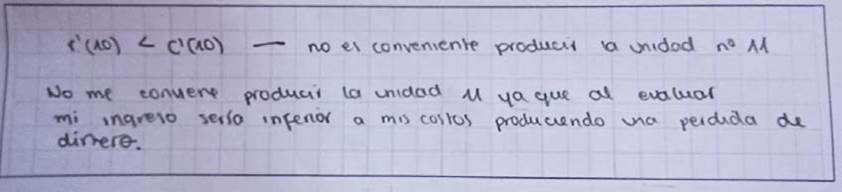 r'(10) < C'(10) — no es conveniente producir la unidad nº 11
No me conviene producir la unidad 11 ya que al evaluar
mi ingreso sería inferior a mis costos produciendo una perdida de
dinero.